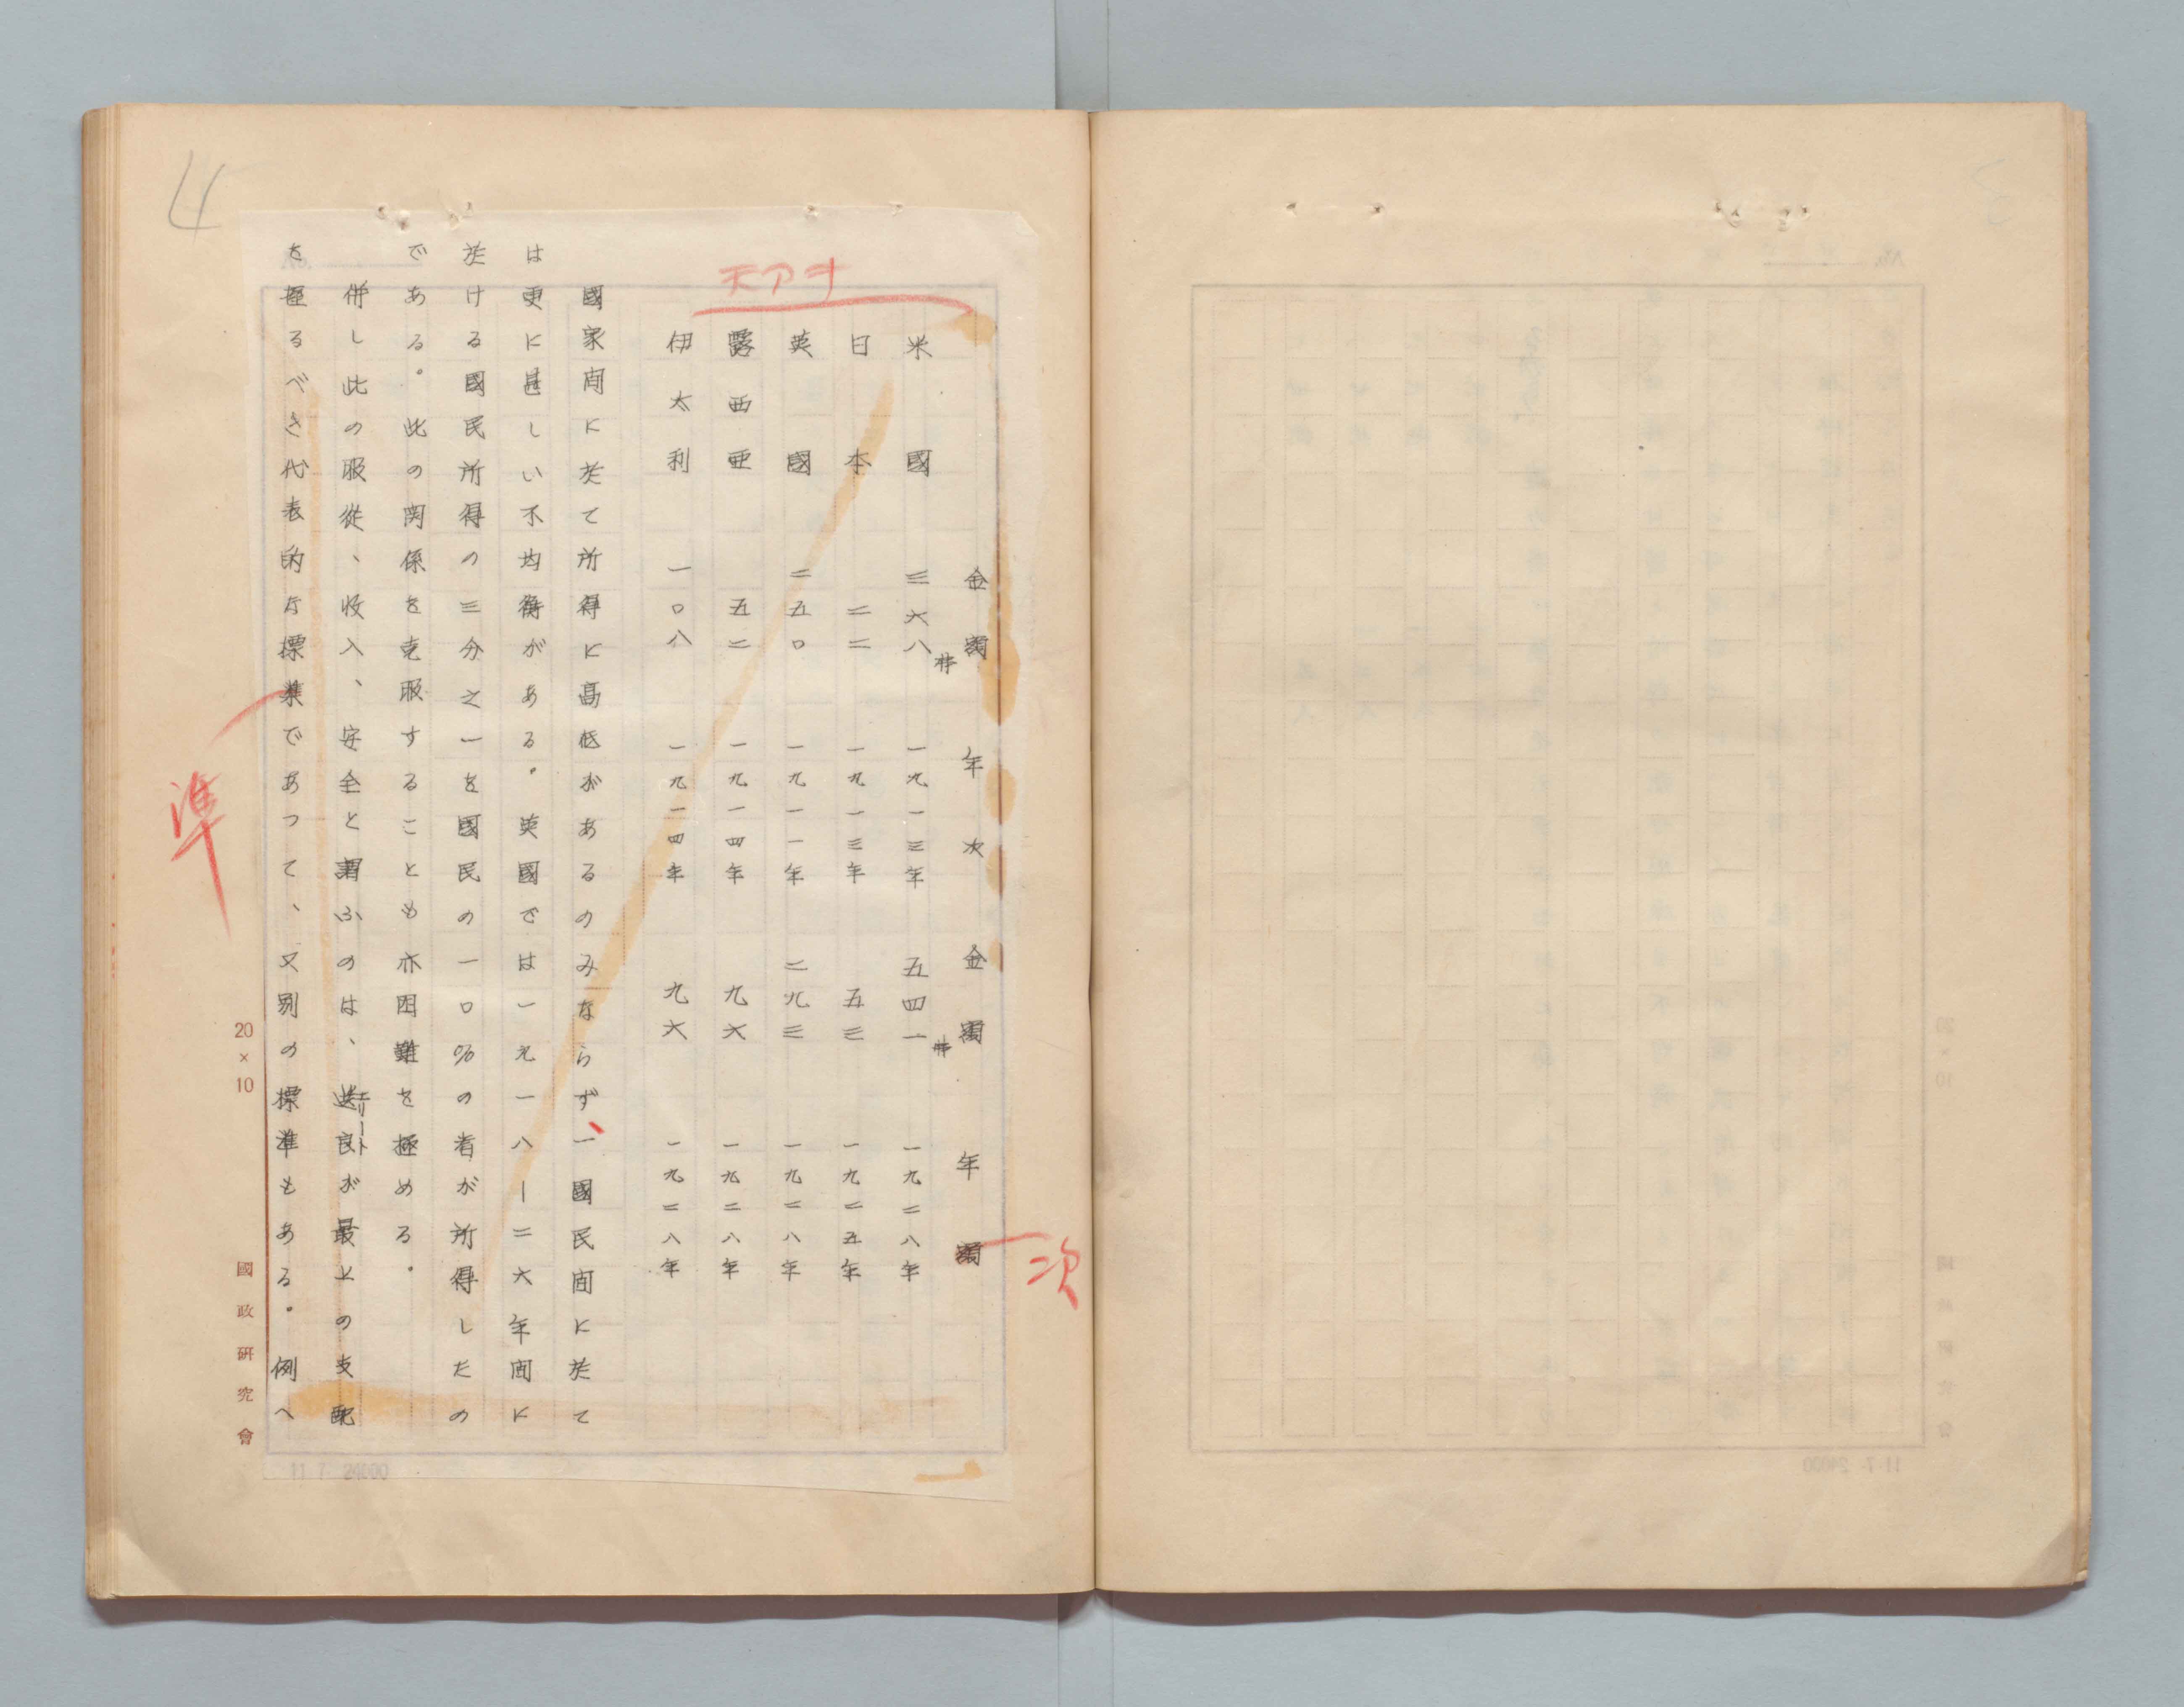 天アキ
金額 年次 金額 年額
次
米國 三六八弗 一九一三年 五四一弗 一九二八年
日本 二二 一九一三年 五三 一九二五年
英國 二五〇 一九一一年 二九三 一九二八年
露西亜 五二 一九一四年 九六 一九二八年
伊太利 一〇八 一九一四年 九六 一九二八年
國家間に於て所得に高低があるのみならず、一國民間に於て
は更に甚しい不均衡がある。英國では一九一八―二六年間に
於ける國民所得の三分之一を國民の一〇%の者が所得したの
である。此の関係を克服することも亦困難を極める。
併し此の服従、収入、安全と謂ふのは、選良が最上の支配
エリート
を握るべき代表的な標準であって、又別の標準もある。例へ
準
4
20×10
國政研究會
11 7 24000